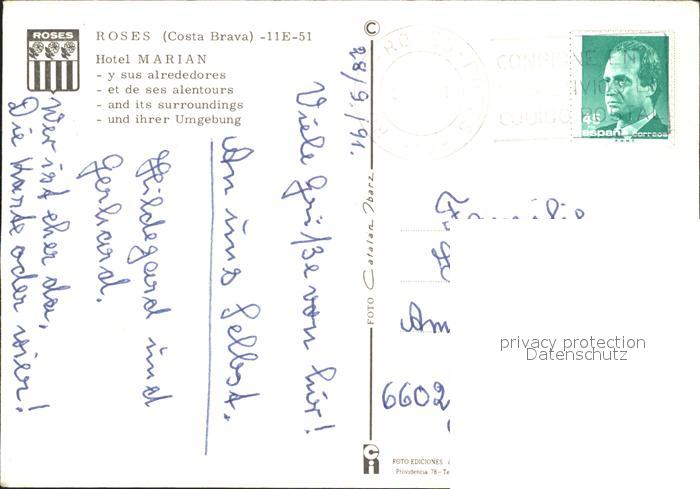 ROSES
ROSES (Costa Brava) -11E-51
Hotel MARIAN
- y sus alrededores
- et de ses alentours
- and its surroundings
- und ihrer Umgebung
28/9./91.
Viele Grüße von hier!
An uns Selbst.
Hildegard und
Gerhard.
Wer ist eher da,
Die Karte oder wir!
©
FOTO Catalan Ibarz
Ci
FOTO EDICIONES
Providencia 78-Te
CONSIGNE EN
CODIGO POSTAL
45
españa correos
Familie
Am
6602
privacy protection
Datenschutz